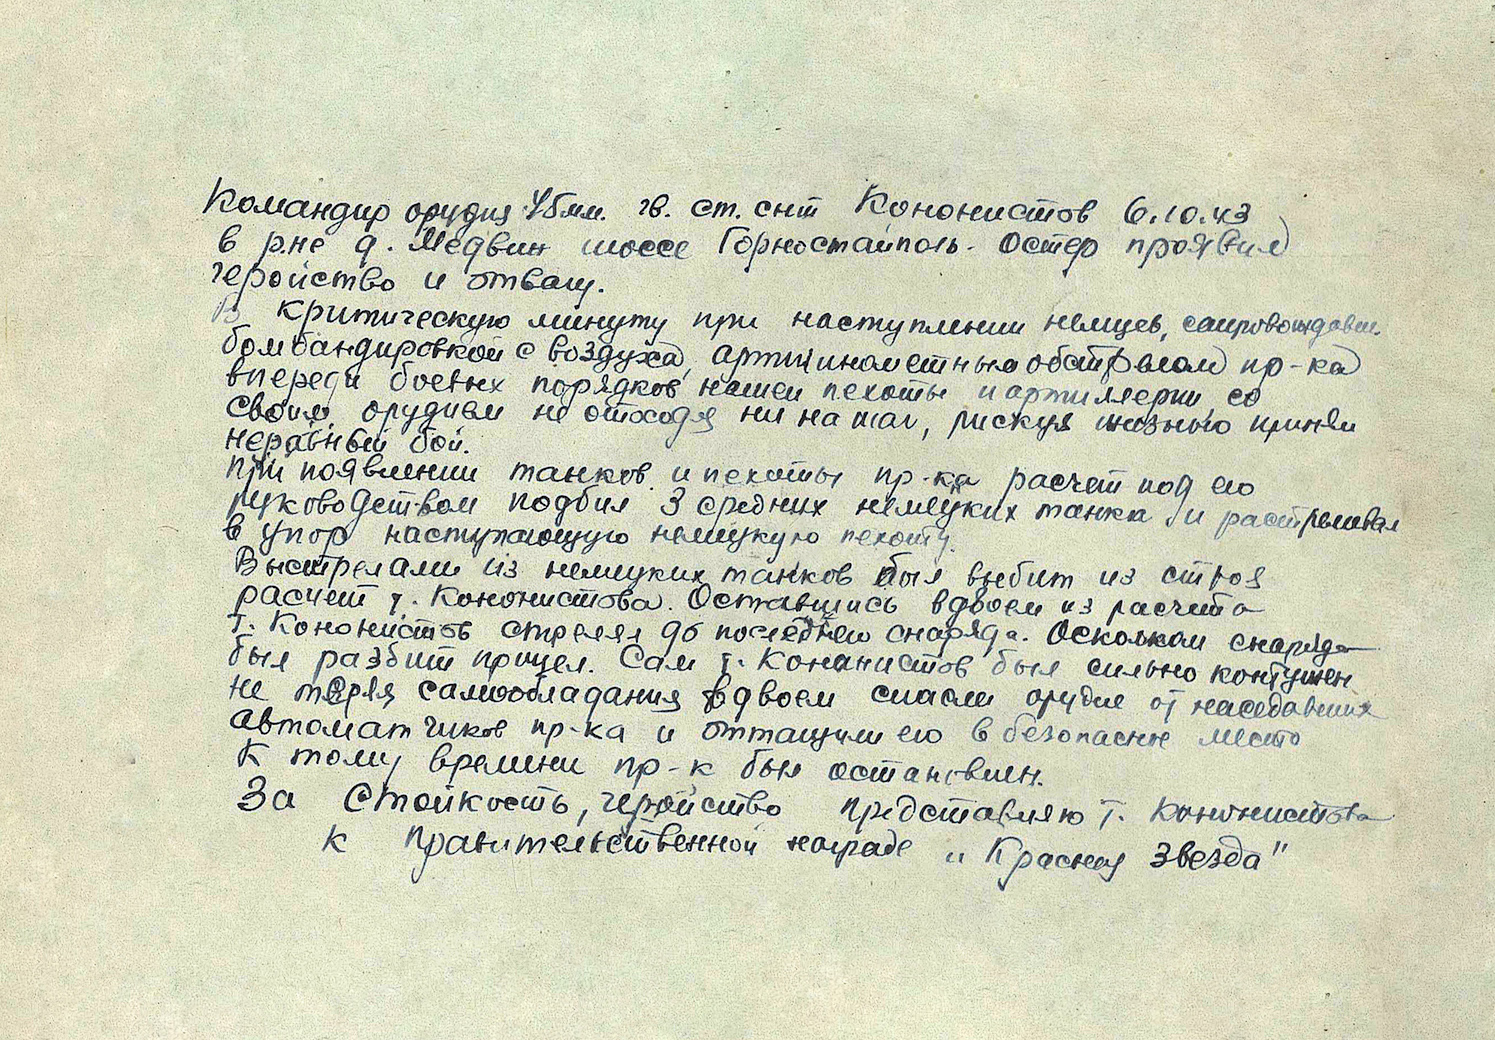 Командир орудия 45мм. гв. ст. снт Кононистов 6.10.43
в рне д. Медвин шоссе Горностайполь - Остер проявил
геройство и отвагу.
В критическую минуту при наступлении немцев, сопровождаем.
бомбандировкой с воздуха, артминометным обстрелом пр-ка
впереди боевых порядков нашей пехоты и артиллерии со
своим орудием не отходя ни на шаг, рискуя жизнью принял
неравный бой.
При появлении танков и пехоты пр-ка расчет под его
руководством подбил 3 средних немецких танка и расстреливал
в упор наступающую немецкую пехоту.
Выстрелами из немецких танков был выбит из строя
расчет т. Кононистова. Оставшись вдвоем из расчета
т. Кононистов стрелял до последнего снаряда. Осколком снаряда
был разбит прицел. Сам т. Кононистов был сильно контужен
не теряя самообладания вдвоем спасли орудие от наседавших
автоматчиков пр-ка и оттащили его в безопасное место
К тому времени пр-к был остановлен.
За стойкость, геройство представляю т. Кононистова
к правительственной награде „Красная звезда"